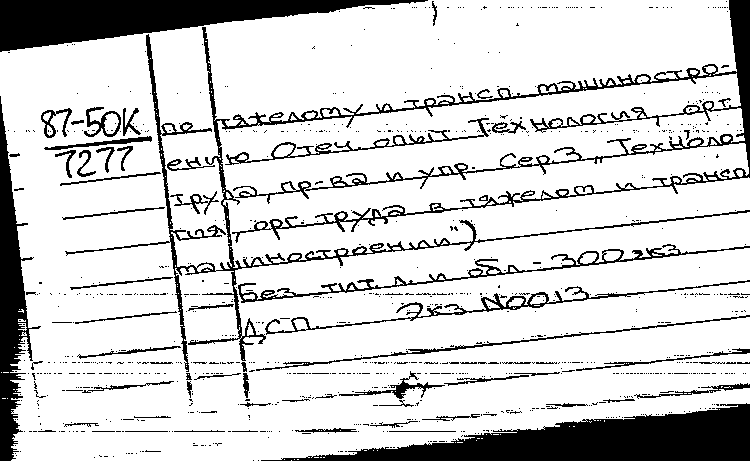 87-50К
7277
по тяжелому и трансп. машиностро-
ению Отеч. опыт Технология, орг.
труда, пр-ва и упр. Сер.3 „Техноло-
гия, орг. труда в тяжелом и трансп
машиностроении")
Без тит. л. и обл - 300 экз
ДСП Экз N0013